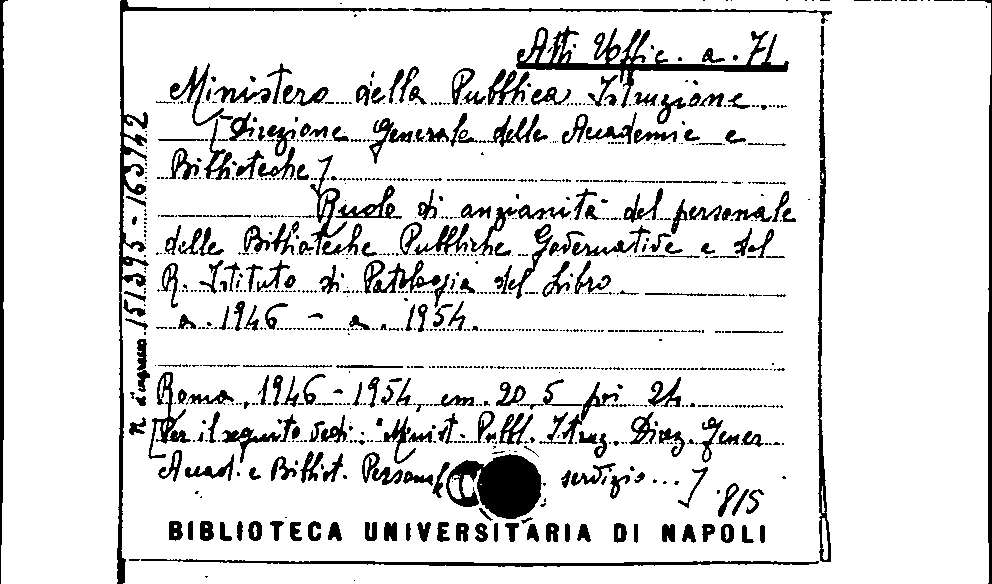 Atti Uffic. a. 71
Ministero della Pubblica Istruzione.
[Direzione Generale delle Accademie e
Biblioteche].
Ruolo di anzianità del personale
delle Biblioteche Pubbliche Governative e del
R. Istituto di Patologia del Libro.
a. 1946 - a. 1954.
Roma, 1946 - 1954, cm. 20,5 poi 24.
[Per il seguito vedi: "Minist. Pubbl. Istruz. Direz. Gener.
Accad. e Bibliot. Personale servizio...]
815
BIBLIOTECA UNIVERSITARIA DI NAPOLI
N. d'ingresso 151395 - 163942